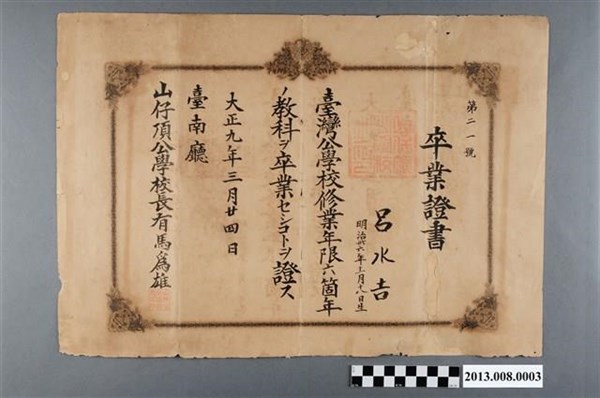 第二一號
卒業證書
呂水吉
明治卅六年三月十八日生
臺灣公學校修業年限六箇年
ノ教科ヲ卒業セシコトヲ證ス
大正九年三月廿四日
臺南廳
山仔頂公學校長有馬爲雄
2013.008.0003